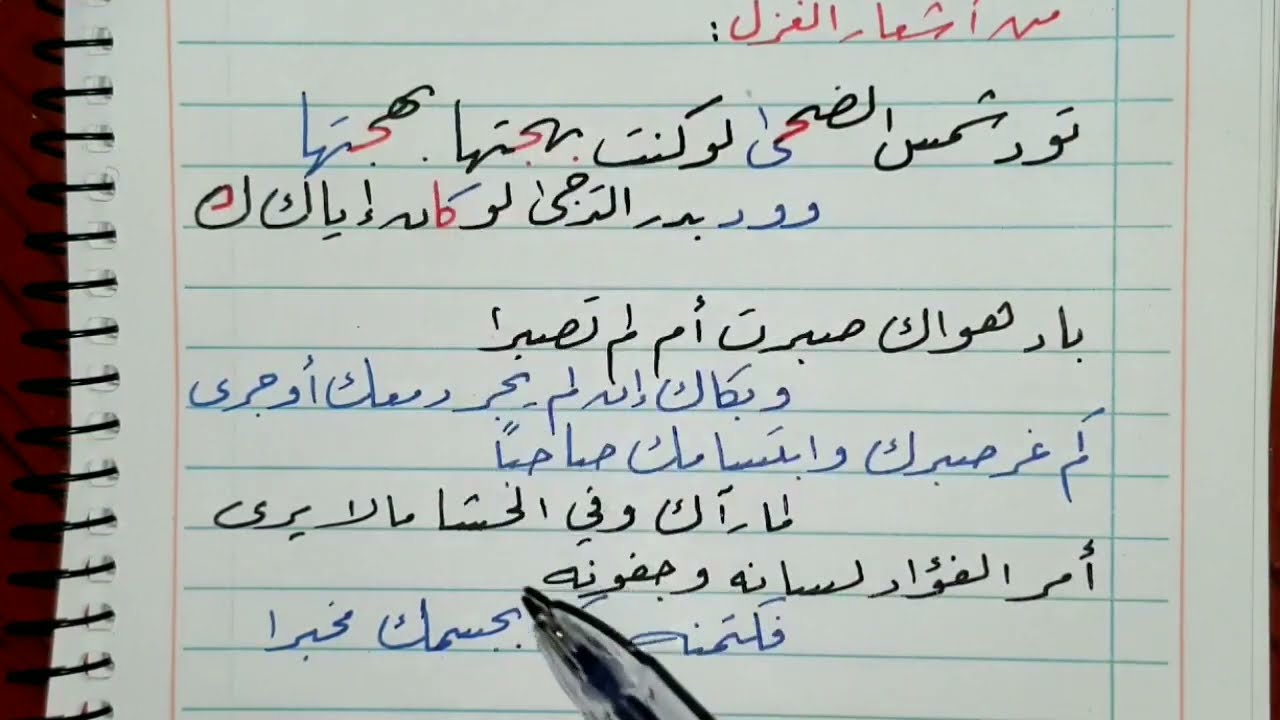 من أشعار الغزل:
تود شمس الضحى لو كنت بهجتها بهجتها
وود بدر الدجى لو كان إياك ك
باد هواك صبرت أم لم تصبرا
وبكاك إن لم يجر دمعك أو جرى
كم غر صبرك وابتسامك صاحبًا
لما رآك وفي الحشا ما لا يرى
أمر الفؤاد لسانه وجفونه
فكتمنه بجسمك مخبرا